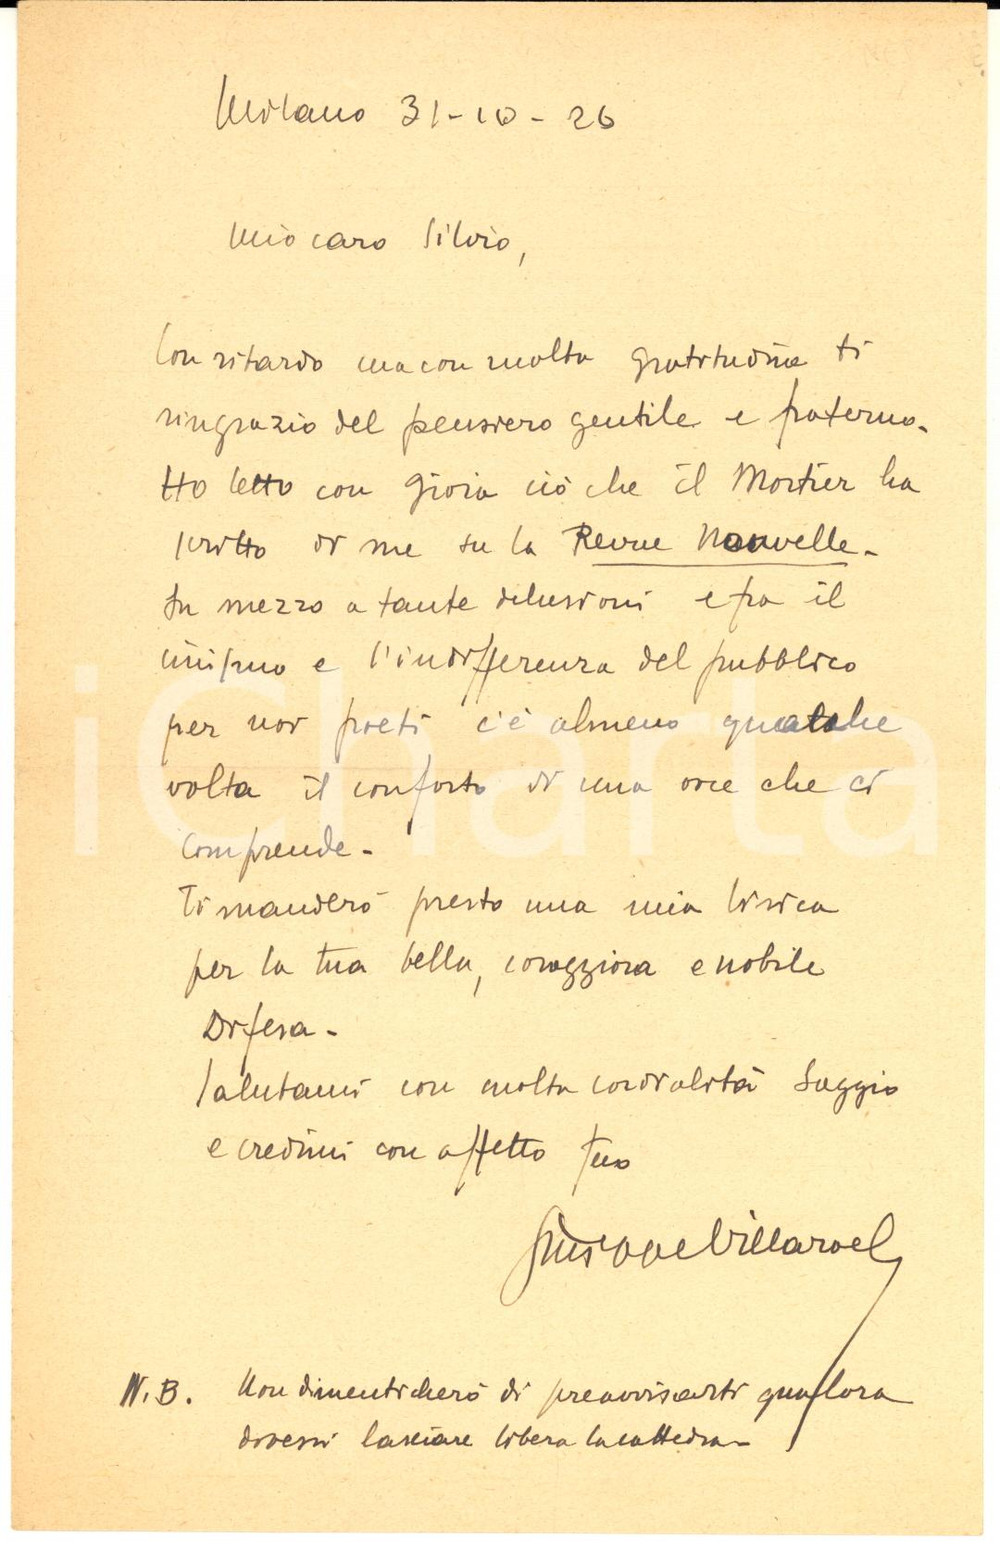 Milano 31-10-26
Mio caro Silvio,
Con ritardo ma con molta gratitudine ti
ringrazio del pensiero gentile e fraterno.
Ho letto con gioia ciò che il Mortier ha
scritto di me su la Revue Nouvelle -
In mezzo a tante delusioni e fra il
cinismo e l'indifferenza del pubblico
per noi poeti c'è almeno qualche
volta il conforto di una voce che ci
comprende -
Ti manderò presto una mia lirica
per la tua bella, coraggiosa e nobile
Difesa -
Salutami con molta cordialità Saggio
e credimi con affetto tuo
Giuseppe Villaroel
N.B. Non dimenticherò di preavvisarti qualora
dovessi lasciare libera la cattedra -
iCharta